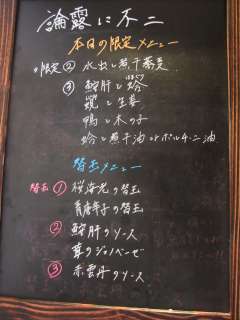 論露に不二
本日の限定メニュー
限定② 水出し煮干蕎麦
③ 鮟肝と蛤
と生姜
鴨と木の子
蛤と煮干油orポルチーニ油
替玉メニュー
替玉① 桜海老の替玉
青唐辛子の替玉
② 鮟肝のソース
茸のジェノベーゼ
③ 赤雲丹のソース